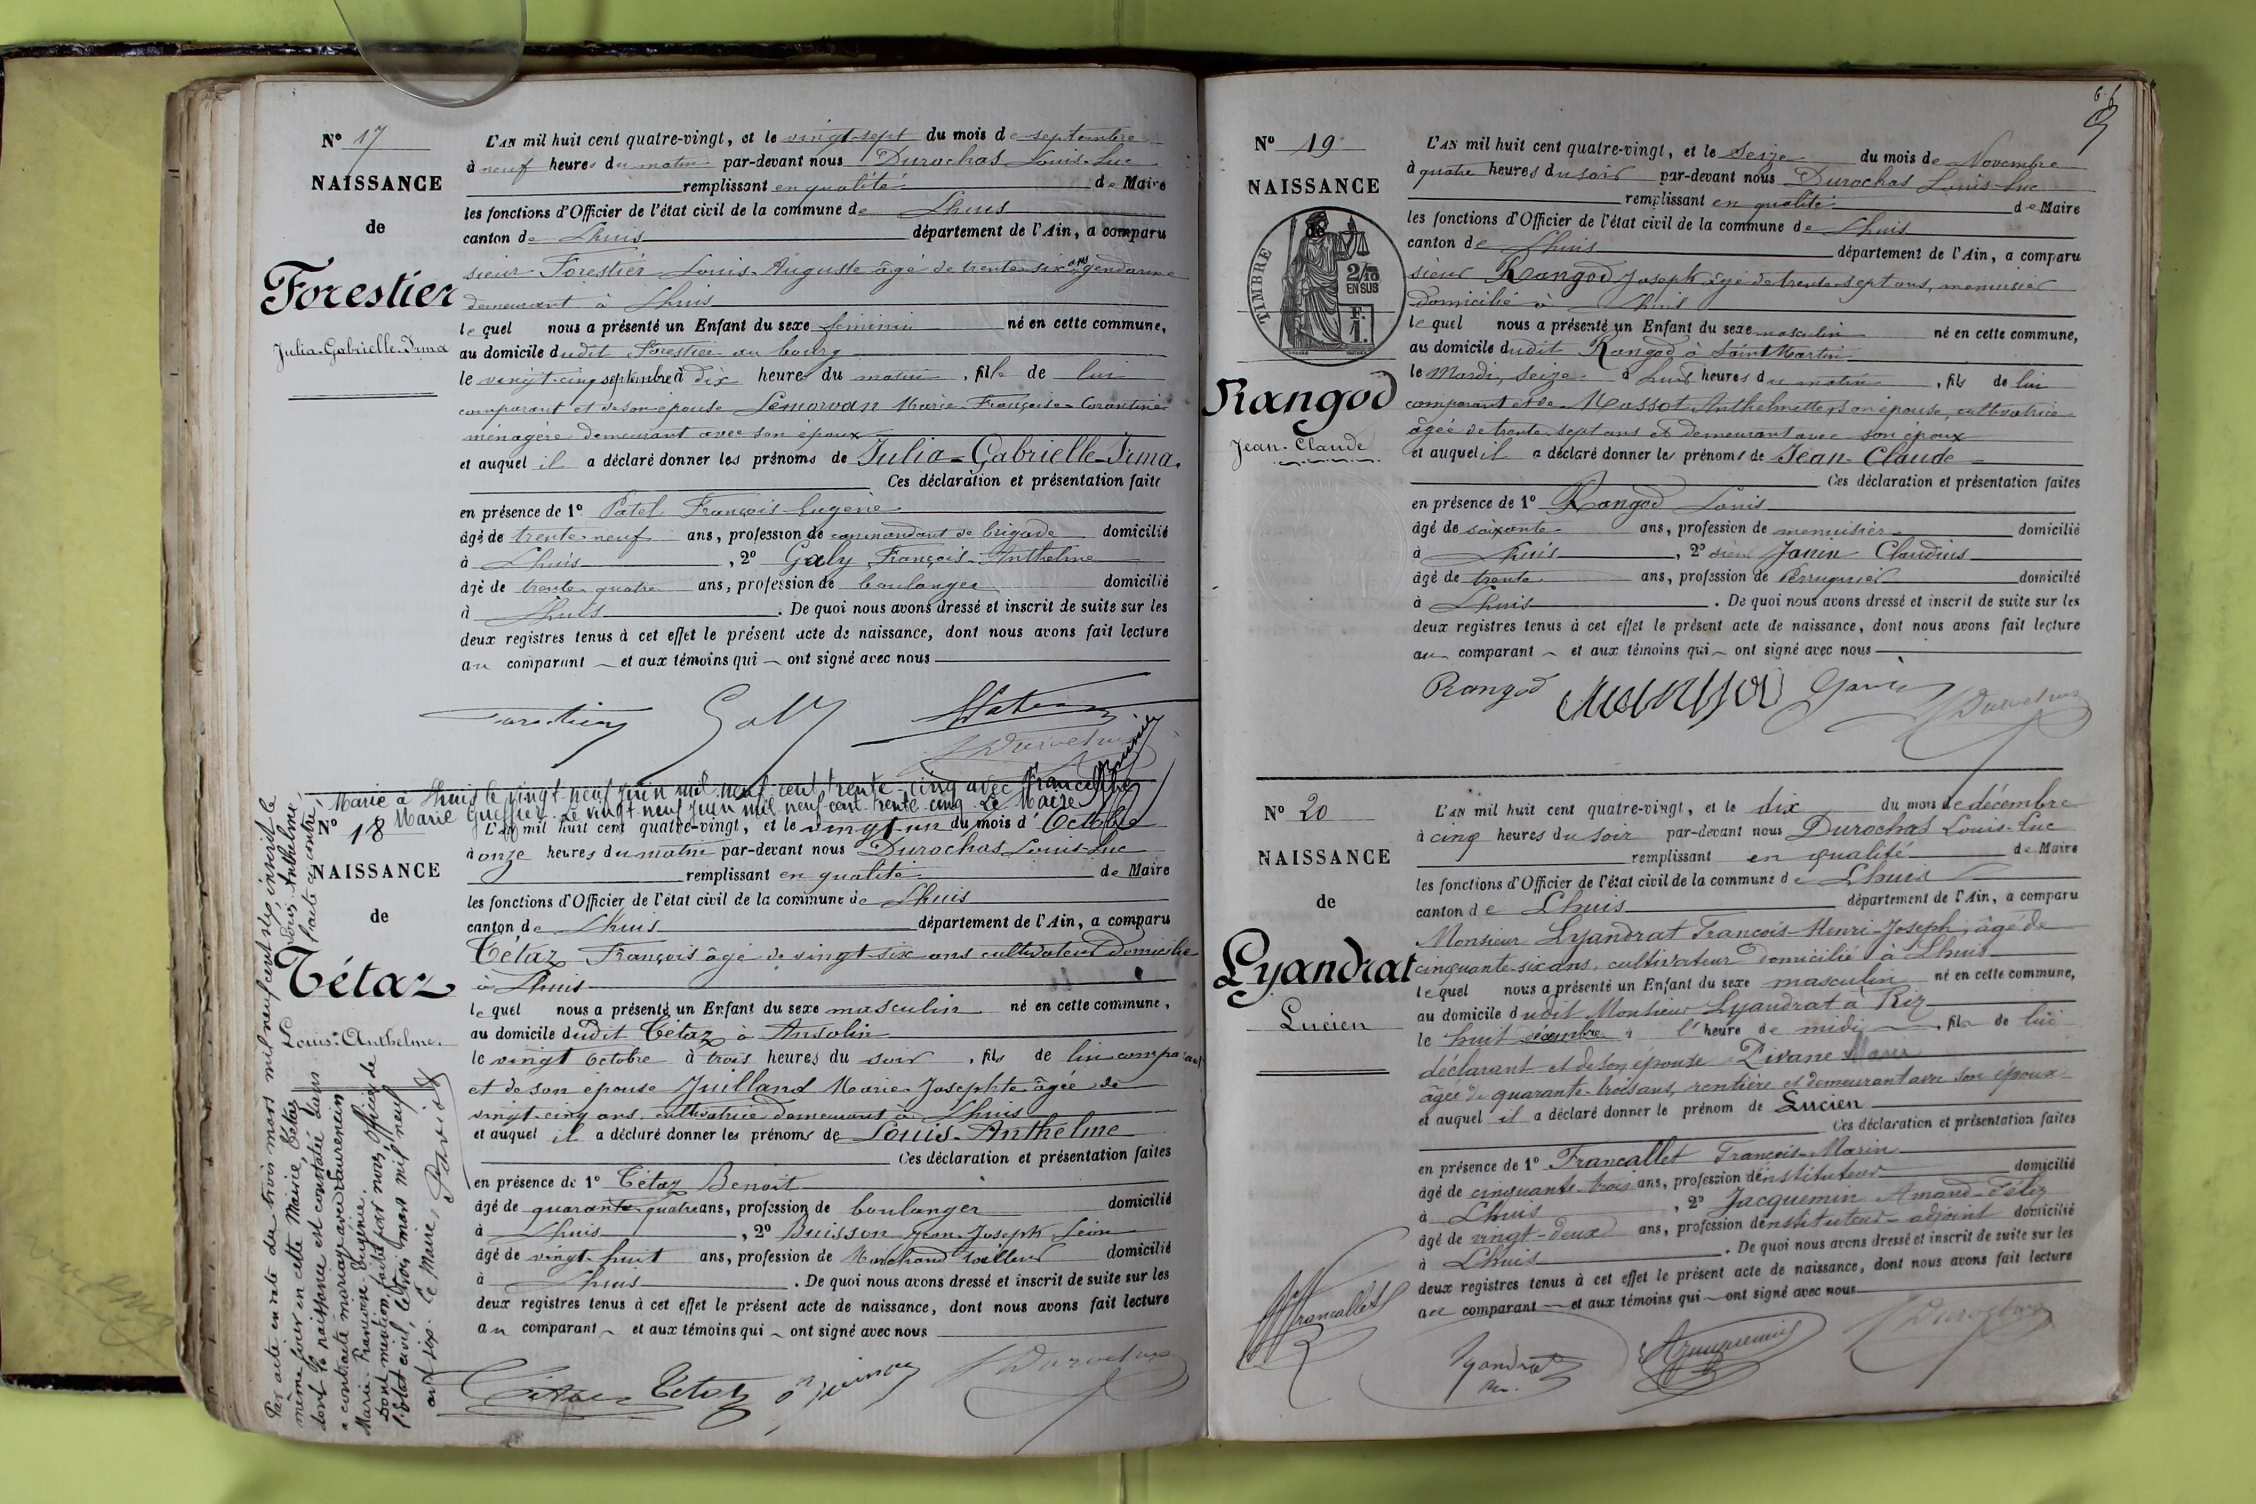 N° 17
NAISSANCE
de
Forestier
Julia-Gabrielle-Irma
L'AN mil huit cent quatre-vingt, et le vingt-sept du mois de septembre
à neuf heures du matin par-devant nous Durochas Louis-Luc
remplissant en qualité de Maire
les fonctions d'Officier de l'état civil de la commune de Lhuis
canton de Lhuis département de l'Ain, a comparu
sieur Forestier Louis-Auguste âgé de trente-six ans, gendarme
demeurant à Lhuis
lequel nous a présenté un Enfant du sexe féminin né en cette commune,
au domicile dudit Forestier au bourg
le vingt-cinq septembre à dix heures du matin, fille de lui
comparant et de son épouse Lemorvan Marie-Françoise-Corantine
ménagère demeurant avec son époux
et auquel il a déclaré donner les prénoms de Julia-Gabrielle-Irma.
Ces déclaration et présentation faite
en présence de 1° Patel François-Eugène
âgé de trente-neuf ans, profession de commandant de brigade domicilié
à Lhuis, 2° Galy François-Anthelme
âgé de trente-quatre ans, profession de boulanger domicilié
à Lhuis. De quoi nous avons dressé et inscrit de suite sur les
deux registres tenus à cet effet le présent acte de naissance, dont nous avons fait lecture
au comparant et aux témoins qui ont signé avec nous
Forestier Galy Patel
Durochas
Marié à Lhuis le vingt-neuf juin mil neuf cent trente-cinq avec Francelline
Marie Guettier. Le vingt-neuf juin mil neuf cent trente-cinq. Le Maire
N° 18
NAISSANCE
de
Tétaz
Louis-Anthelme.
Par acte en date du trois mars mil neuf cent six, inscrit le
même jour en cette Mairie, Tétaz Louis-Anthelme,
dont la naissance est constatée dans l'acte ci-contre,
a contracté mariage avec Laurencin
Marie-Francine-Eugénie.
Dont mention faite par nous, officier de
l'état civil, le trois mars mil neuf
cent six. Le Maire,
L'AN mil huit cent quatre-vingt, et le vingt-un du mois d'Octobre
à onze heures du matin par-devant nous Durochas Louis-Luc
remplissant en qualité de Maire
les fonctions d'Officier de l'état civil de la commune de Lhuis
canton de Lhuis département de l'Ain, a comparu
Tétaz François âgé de vingt-six ans cultivateur domicilié
à Lhuis
lequel nous a présenté un Enfant du sexe masculin né en cette commune,
au domicile dudit Tétaz à Ansolin
le vingt Octobre à trois heures du soir, fils de lui comparant
et de son épouse Juilland Marie-Josephte âgée de
vingt-cinq ans, cultivatrice demeurant à Lhuis
et auquel il a déclaré donner les prénoms de Louis-Anthelme
Ces déclaration et présentation faites
en présence de 1° Tétaz Benoit
âgé de quarante-quatre ans, profession de boulanger domicilié
à Lhuis, 2° Buisson Jean-Joseph Léon
âgé de vingt-huit ans, profession de Marchand tailleur domicilié
à Lhuis. De quoi nous avons dressé et inscrit de suite sur les
deux registres tenus à cet effet le présent acte de naissance, dont nous avons fait lecture
au comparant et aux témoins qui ont signé avec nous
Tétaz Tetaz Buisson Durochas
N° 19
NAISSANCE
TIMBRE
2/10
EN SUS
F.
1.
Rangod
Jean-Claude
L'AN mil huit cent quatre-vingt, et le seize du mois de Novembre
à quatre heures du soir par-devant nous Durochas Louis-Luc
remplissant en qualité de Maire
les fonctions d'Officier de l'état civil de la commune de Lhuis
canton de Lhuis département de l'Ain, a comparu
sieur Rangod Joseph âgé de trente-sept ans, menuisier
domicilié à Lhuis
lequel nous a présenté un Enfant du sexe masculin né en cette commune,
au domicile dudit Rangod à Saint Martin
le Mardi, seize à huit heures du matin, fils de lui
comparant et de Massot Anthelmette, son épouse, cultivatrice
âgée de trente-sept ans et demeurant avec son époux
et auquel il a déclaré donner les prénoms de Jean-Claude
Ces déclaration et présentation faites
en présence de 1° Rangod Louis
âgé de soixante ans, profession de menuisier domicilié
à Lhuis, 2° sieur Janin Claudius
âgé de trente ans, profession de Perruquier domicilié
à Lhuis. De quoi nous avons dressé et inscrit de suite sur les
deux registres tenus à cet effet le présent acte de naissance, dont nous avons fait lecture
au comparant et aux témoins qui ont signé avec nous
Rangod Janin Durochas
N° 20
NAISSANCE
de
Lyandrat
Lucien
L'AN mil huit cent quatre-vingt, et le dix du mois de décembre
à cinq heures du soir par-devant nous Durochas Louis-Luc
remplissant en qualité de Maire
les fonctions d'Officier de l'état civil de la commune de Lhuis
canton de Lhuis département de l'Ain, a comparu
Monsieur Lyandrat François-Henri-Joseph, âgé de
cinquante-six ans, cultivateur domicilié à Lhuis
lequel nous a présenté un Enfant du sexe masculin né en cette commune,
au domicile dudit Monsieur Lyandrat à Rix
le huit décembre à l'heure de midi, fils de lui
déclarant et de son épouse Marie
âgée de quarante-trois ans, rentière et demeurant avec son époux
et auquel il a déclaré donner le prénom de Lucien
Ces déclaration et présentation faites
en présence de 1° Francallet François-Marin
âgé de cinquante-trois ans, profession d'instituteur domicilié
à Lhuis, 2° Jacquemin Amand-Félix
âgé de vingt-deux ans, profession d'instituteur-adjoint domicilié
à Lhuis. De quoi nous avons dressé et inscrit de suite sur les
deux registres tenus à cet effet le présent acte de naissance, dont nous avons fait lecture
au comparant et aux témoins qui ont signé avec nous
Francallet
Lyandrat Jacquemin Durochas